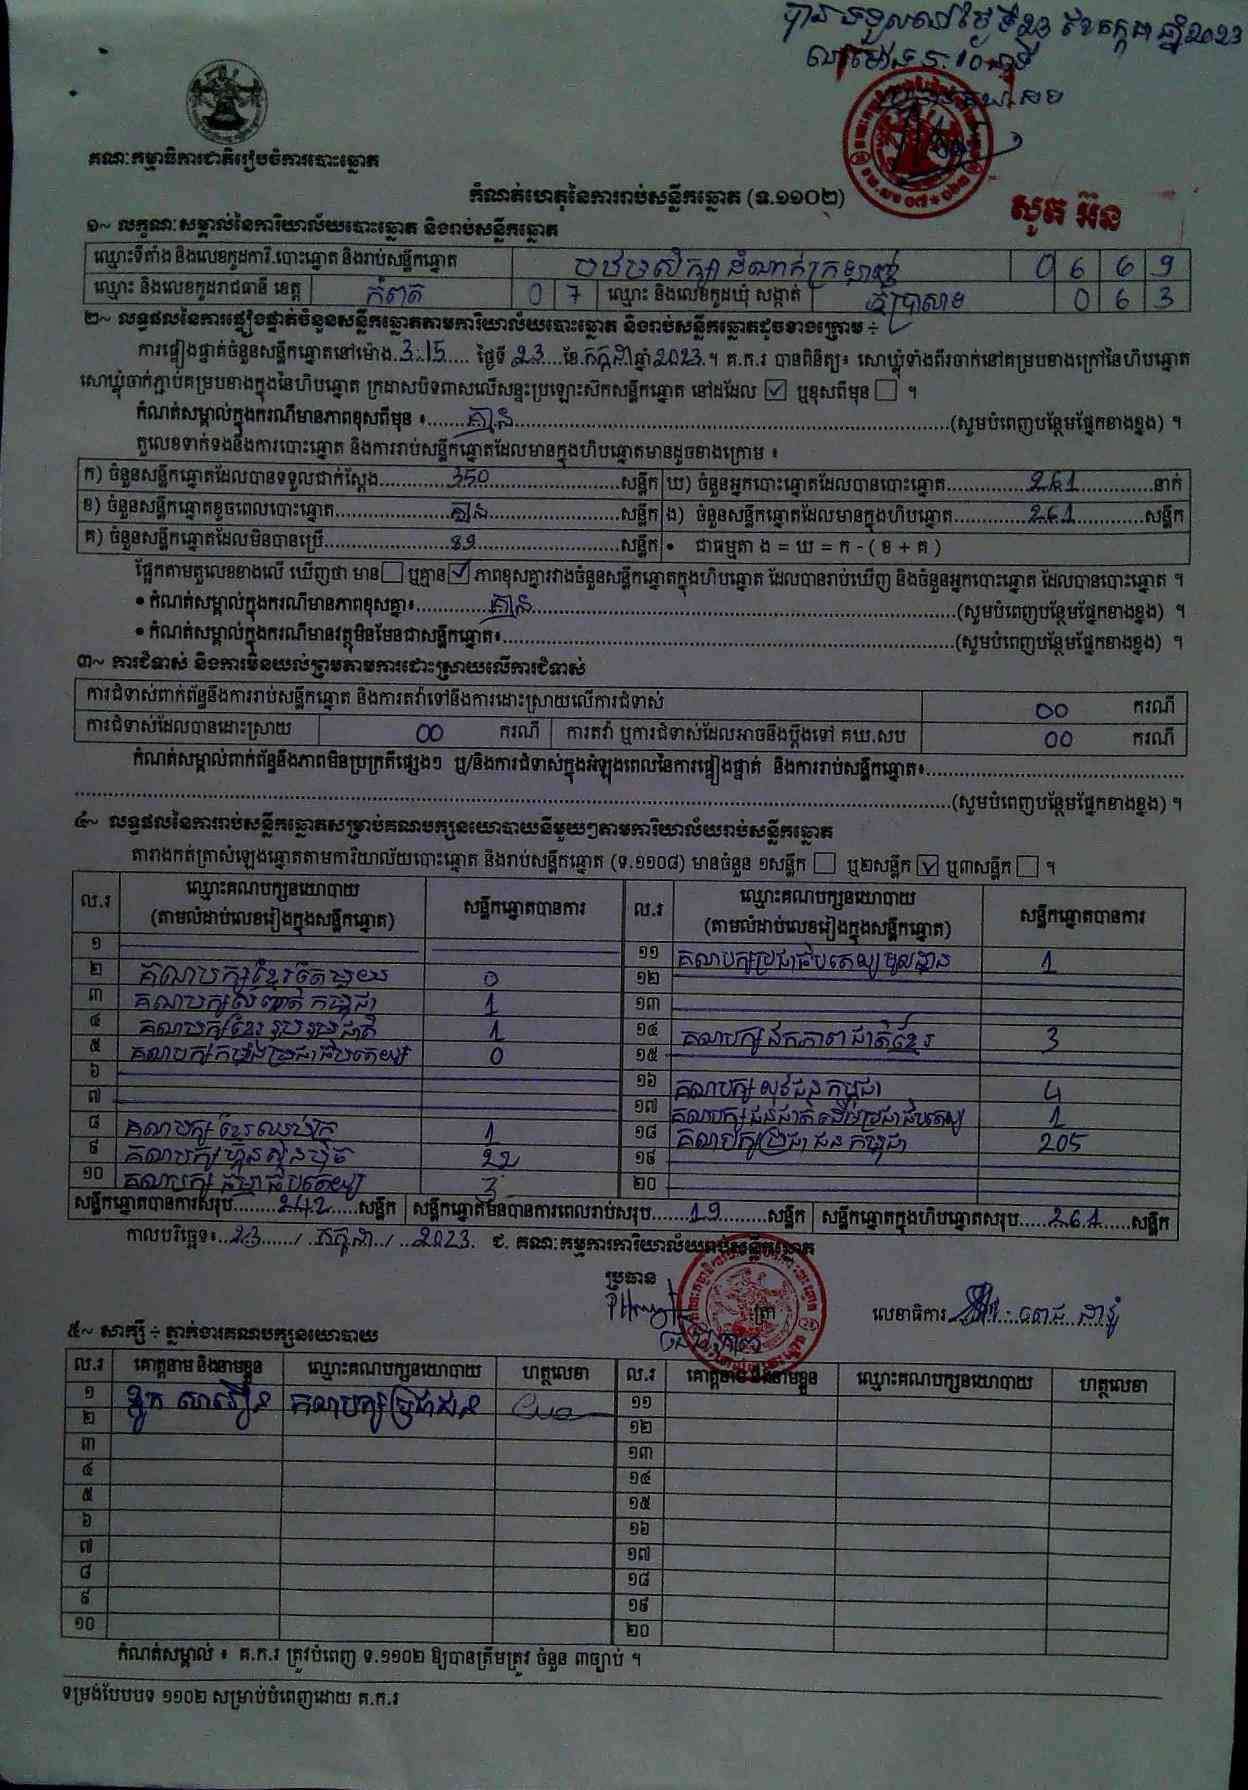 បានទទួលនៅថ្ងៃទី23 ខែកក្កដា ឆ្នាំ2023
គណៈកម្មាធិការជាតិរៀបចំការបោះឆ្នោត
កំណត់ហេតុនៃការរាប់សន្លឹកឆ្នោត (ទ.១១០២)
សួត អ៊ន
១~ លក្ខណៈសម្គាល់នៃការិយាល័យបោះឆ្នោត និងរាប់សន្លឹកឆ្នោត
ឈ្មោះទីតាំង និងលេខកូដការិ.បោះឆ្នោត និងរាប់សន្លឹកឆ្នោត បឋមសិក្សាដំណាក់ត្រឡាញ់ 0 6 6 9
ឈ្មោះ និងលេខកូដរាជធានី ខេត្ត កំពត 0 7 ឈ្មោះ និងលេខកូដឃុំ សង្កាត់ 0 6 3
២~ លទ្ធផលនៃការផ្ទៀងផ្ទាត់ចំនួនសន្លឹកឆ្នោតតាមការិយាល័យបោះឆ្នោត និងរាប់សន្លឹកឆ្នោតដូចខាងក្រោម ÷
ការផ្ទៀងផ្ទាត់ចំនួនសន្លឹកឆ្នោតនៅម៉ោង.3:15.... ថ្ងៃទី 23 ខែ.កក្កដា ឆ្នាំ 2023.។ គ.ក.រ បានពិនិត្យ៖ សោឃ្លុំទាំងពីរចាក់នៅគម្របខាងក្រៅនៃហិបឆ្នោត
សោឃ្លុំចាក់ភ្ជាប់គម្របខាងក្នុងនៃហិបឆ្នោត ក្រដាសបិទពាសលើសន្ទះប្រឡោះស៊កសន្លឹកឆ្នោត នៅដដែល ☑ ឬខុសពីមុន ☐ ។
កំណត់សម្គាល់ក្នុងករណីមានភាពខុសពីមុន ៖........គ្មាន........(សូមបំពេញបន្ថែមផ្នែកខាងខ្នង) ។
តួលេខទាក់ទងនឹងការបោះឆ្នោត និងការរាប់សន្លឹកឆ្នោតដែលមានក្នុងហិបឆ្នោតមានដូចខាងក្រោម ៖
ក) ចំនួនសន្លឹកឆ្នោតដែលបានទទួលជាក់ស្តែង........350........សន្លឹក ឃ) ចំនួនអ្នកបោះឆ្នោតដែលបានបោះឆ្នោត........261........នាក់
ខ) ចំនួនសន្លឹកឆ្នោតខូចពេលបោះឆ្នោត........គ្មាន........សន្លឹក ង) ចំនួនសន្លឹកឆ្នោតដែលមានក្នុងហិបឆ្នោត........261........សន្លឹក
គ) ចំនួនសន្លឹកឆ្នោតដែលមិនបានប្រើ........89........សន្លឹក • ជាធម្មតា ង = ឃ = ក - ( ខ + គ )
ផ្អែកតាមតួលេខខាងលើ ឃើញថា មាន ☐ ឬគ្មាន ☑ ភាពខុសគ្នារវាងចំនួនសន្លឹកឆ្នោតក្នុងហិបឆ្នោត ដែលបានរាប់ឃើញ និងចំនួនអ្នកបោះឆ្នោត ដែលបានបោះឆ្នោត ។
• កំណត់សម្គាល់ក្នុងករណីមានភាពខុសគ្នា៖........គ្មាន........(សូមបំពេញបន្ថែមផ្នែកខាងខ្នង) ។
• កំណត់សម្គាល់ក្នុងករណីមានវត្ថុមិនមែនជាសន្លឹកឆ្នោត៖........(សូមបំពេញបន្ថែមផ្នែកខាងខ្នង) ។
៣~ ការជំទាស់ និងការមិនយល់ព្រមតាមការដោះស្រាយលើការជំទាស់
ការជំទាស់ពាក់ព័ន្ធនឹងការរាប់សន្លឹកឆ្នោត និងការតវ៉ាទៅនឹងការដោះស្រាយលើការជំទាស់ 00 ករណី
ការជំទាស់ដែលបានដោះស្រាយ 00 ករណី ការតវ៉ា ឬការជំទាស់ដែលអាចនឹងប្តឹងទៅ គឃ.សប 00 ករណី
កំណត់សម្គាល់ពាក់ព័ន្ធនឹងភាពមិនប្រក្រតីផ្សេងៗ ឬ/និងការជំទាស់ក្នុងអំឡុងពេលនៃការផ្ទៀងផ្ទាត់ និងការរាប់សន្លឹកឆ្នោត៖........
........(សូមបំពេញបន្ថែមផ្នែកខាងខ្នង) ។
៤~ លទ្ធផលនៃការរាប់សន្លឹកឆ្នោតសម្រាប់គណបក្សនយោបាយនីមួយៗតាមការិយាល័យរាប់សន្លឹកឆ្នោត
តារាងកត់ត្រាសំឡេងឆ្នោតតាមការិយាល័យបោះឆ្នោត និងរាប់សន្លឹកឆ្នោត (ទ.១១០៨) មានចំនួន ១សន្លឹក ☐ ឬ២សន្លឹក ☑ ឬ៣សន្លឹក ☐ ។
ល.រ ឈ្មោះគណបក្សនយោបាយ (តាមលំដាប់លេខរៀងក្នុងសន្លឹកឆ្នោត) សន្លឹកឆ្នោតបានការ ល.រ ឈ្មោះគណបក្សនយោបាយ (តាមលំដាប់លេខរៀងក្នុងសន្លឹកឆ្នោត) សន្លឹកឆ្នោតបានការ
១ ១១ គណបក្សប្រជាធិបតេយ្យមូលដ្ឋាន 1
២ គណបក្សខ្មែរតែមួយ 0 ១២
៣ គណបក្សសញ្ជាតិកម្ពុជា 1 ១៣
៤ គណបក្សខ្មែររួបរួមជាតិ 1 ១៤ គណបក្សឯកភាពជាតិខ្មែរ 3
៥ គណបក្សកម្លាំងប្រជាធិបតេយ្យ 0 ១៥
៦ ១៦ គណបក្សយុវជនកម្ពុជា 4
៧ ១៧ គណបក្សជនជាតិដើមប្រជាធិបតេយ្យ 1
៨ គណបក្សខ្មែរឈប់ក្រ 1 ១៨ គណបក្សប្រជាជនកម្ពុជា 205
៩ គណបក្សហ្វ៊ុនស៊ិនប៉ិច 22 ១៩
១០ គណបក្សធម្មាធិបតេយ្យ 3 ២០
សន្លឹកឆ្នោតបានការសរុប........242.....សន្លឹក សន្លឹកឆ្នោតមិនបានការពេលរាប់សរុប.......19........សន្លឹក សន្លឹកឆ្នោតក្នុងហិបឆ្នោតសរុប.....261......សន្លឹក
កាលបរិច្ឆេទ៖..23....../..កក្កដា../..2023. ជ. គណៈកម្មការការិយាល័យរាប់សន្លឹកឆ្នោត
ប្រធាន
ត្រា លេខាធិការ
៥~ សាក្សី ÷ ភ្នាក់ងារគណបក្សនយោបាយ
ល.រ គោត្តនាម និងនាមខ្លួន ឈ្មោះគណបក្សនយោបាយ ហត្ថលេខា ល.រ គោត្តនាម និងនាមខ្លួន ឈ្មោះគណបក្សនយោបាយ ហត្ថលេខា
១ គណបក្សប្រជាជន ១១
២ ១២
៣ ១៣
៤ ១៤
៥ ១៥
៦ ១៦
៧ ១៧
៨ ១៨
៩ ១៩
១០ ២០
កំណត់សម្គាល់ ៖ គ.ក.រ ត្រូវបំពេញ ទ.១១០២ ឱ្យបានត្រឹមត្រូវ ចំនួន ៣ច្បាប់ ។
ទម្រង់បែបបទ ១១០២ សម្រាប់បំពេញដោយ គ.ក.រ